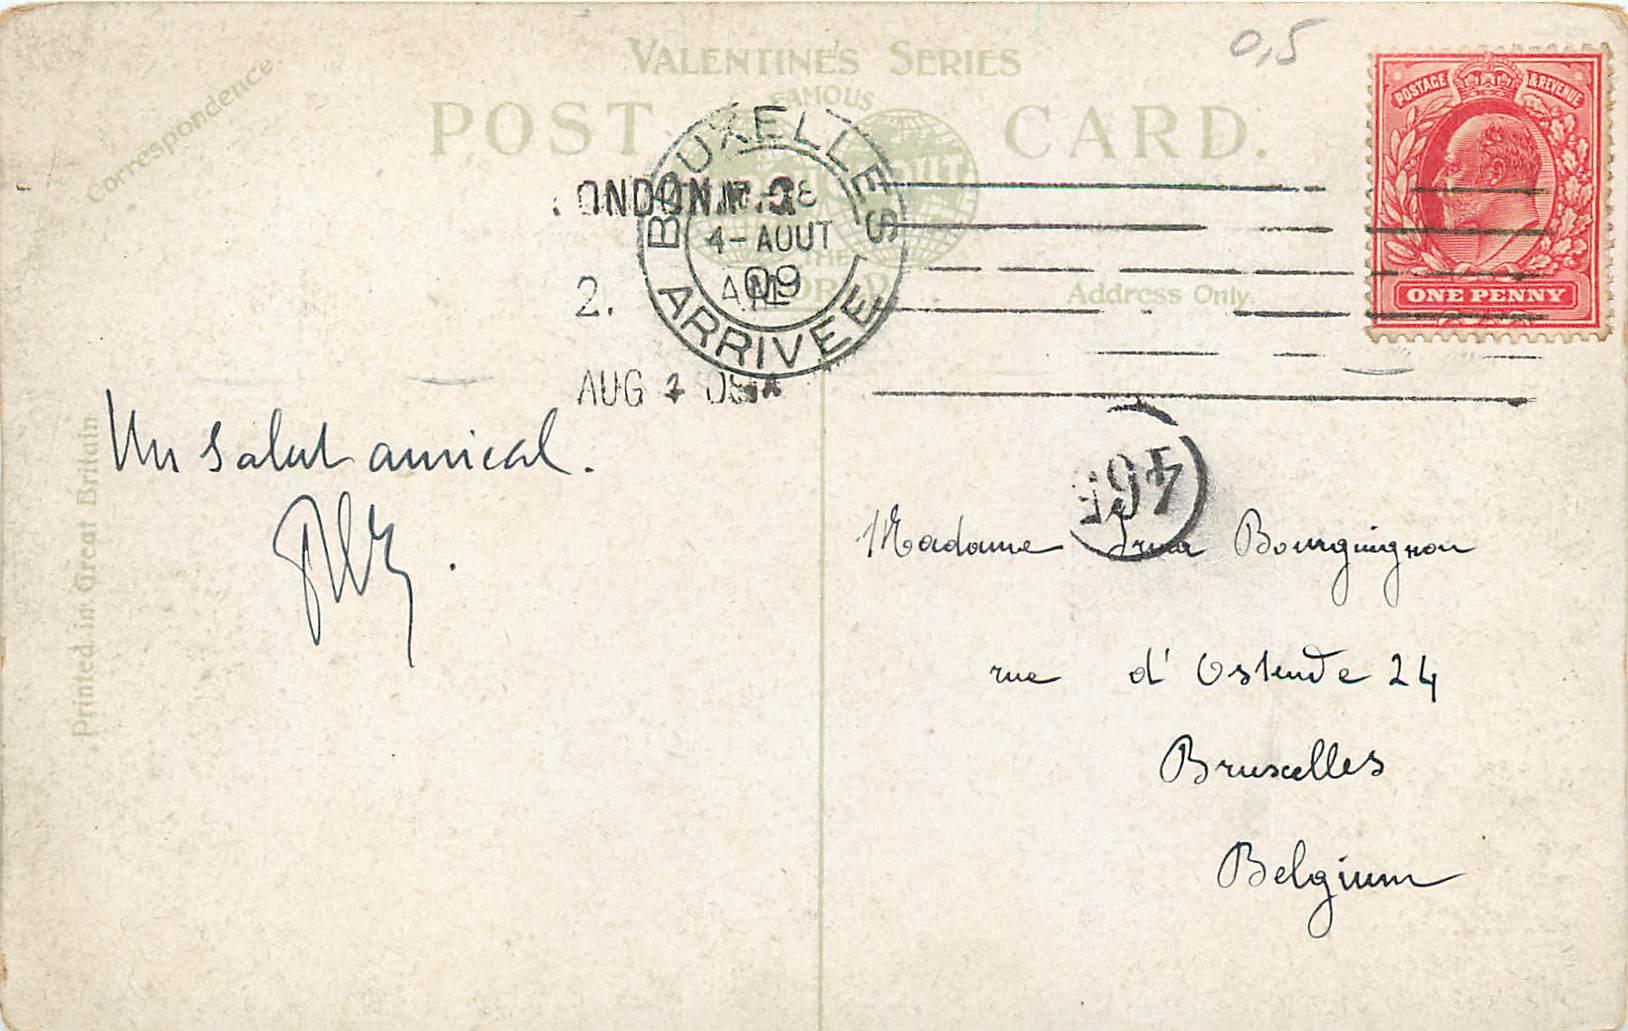 0,5
VALENTINE'S SERIES
Correspondence
POST CARD.
FAMOUS
THE
WORLD
Address Only.
POSTAGE & REVENUE
ONE PENNY
BRUXELLES
4-AOUT
09
ARRIVEE
LONDON.W.
2.
AUG
Un salut amical.
Printed in Great Britain
Madame Bourguignon
rue d'Ostende 24
Bruxelles
Belgium